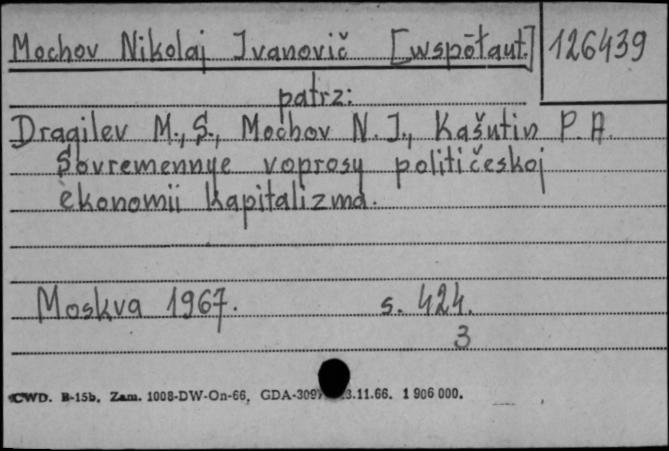 Mochov Nikolaj Ivanovič [współaut.] 126439
patrz:
Dragilev M., S., Mochov N. I., Kašutin P. A.
Sovremennye voprosy političeskoj
èkonomii kapitalizma.
Moskva 1967. s. 424.
3
CWD. B-15b, Zam. 1008-DW-On-66, GDA-309 .11.66. 1 906 000.